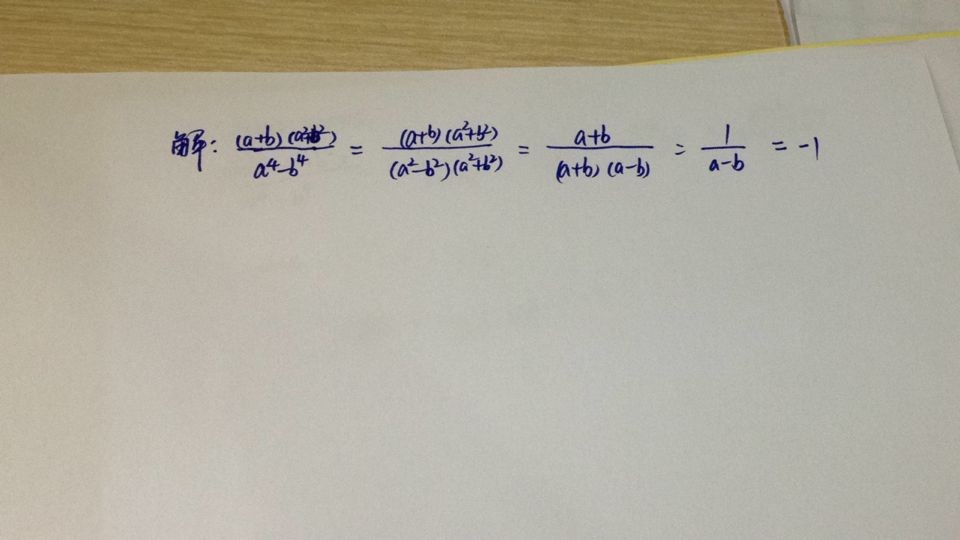 解: \frac{(a+b)(a²+b²)}{a⁴-b⁴} = \frac{(a+b)(a²+b²)}{(a²-b²)(a²+b²)} = \frac{a+b}{(a+b)(a-b)} = \frac{1}{a-b} = -1